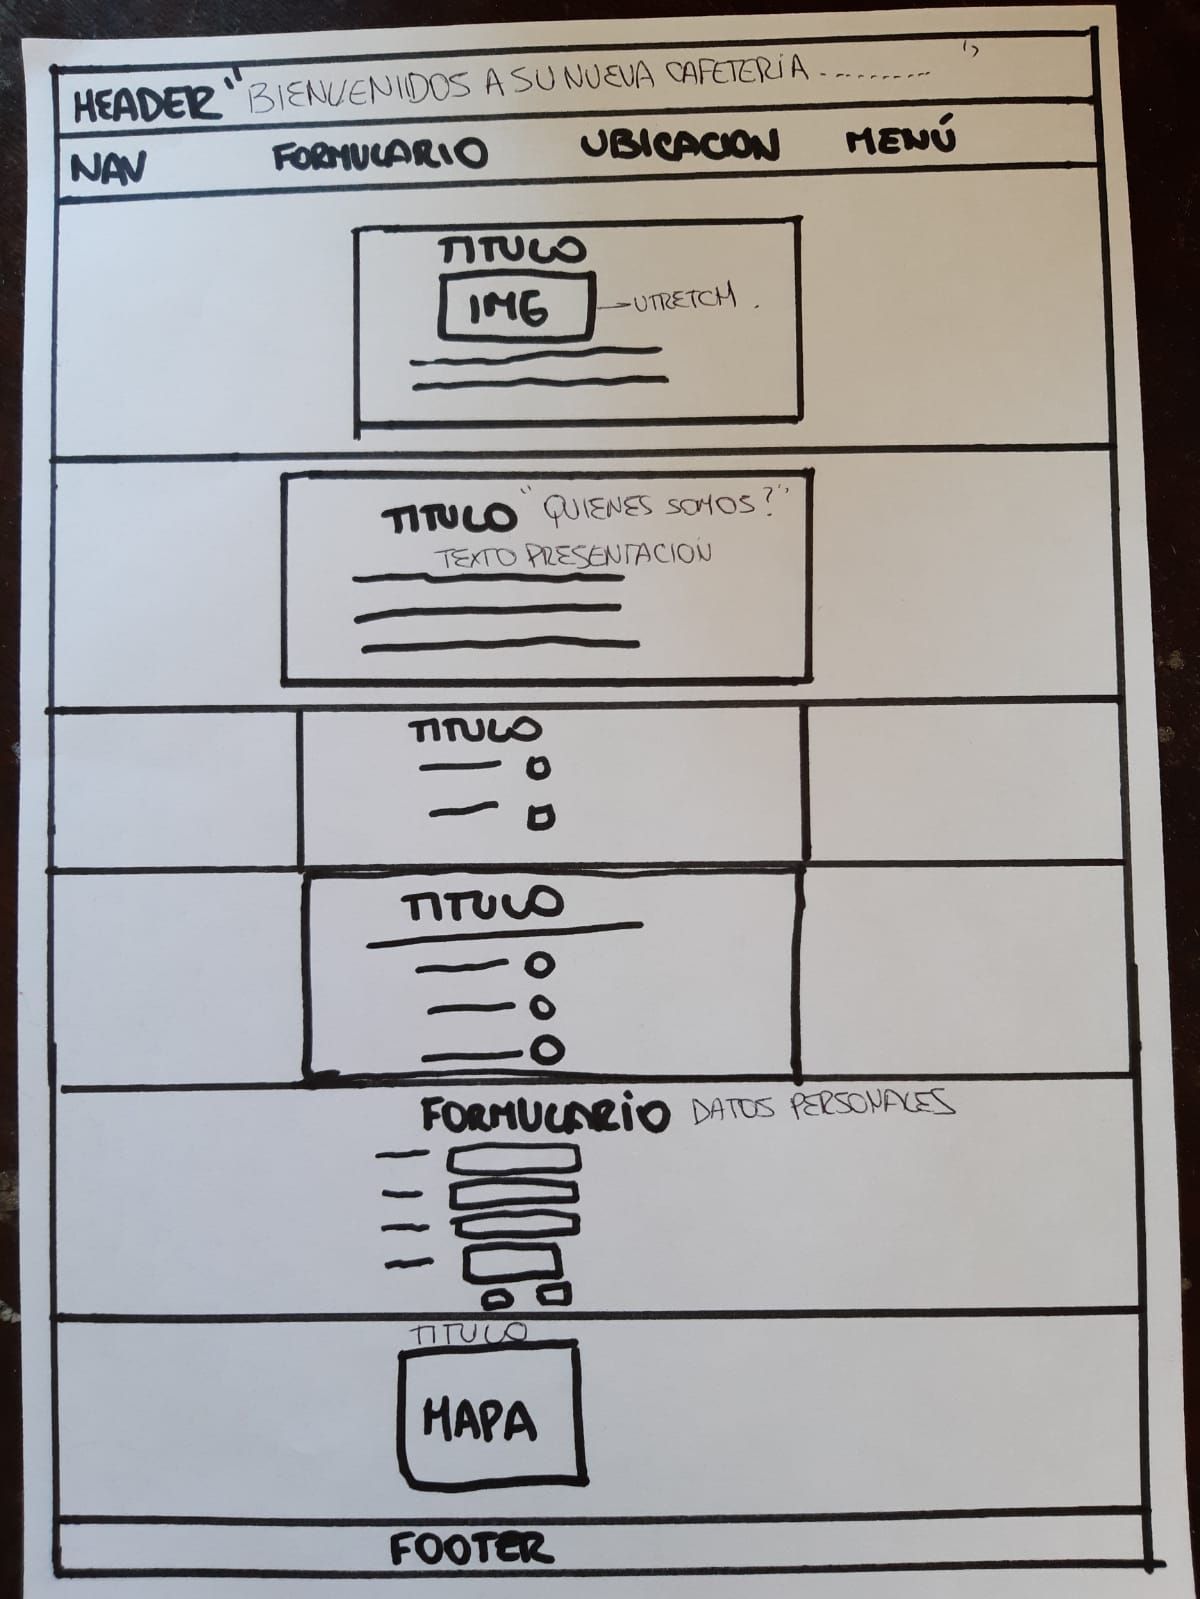 HEADER "BIENVENIDOS A SU NUEVA CAFETERIA ........."
NAV FORMULARIO UBICACION MENÚ
TITULO
IMG UTRETCH .
TITULO "QUIENES SOMOS?"
TEXTO PRESENTACION
TITULO
TITULO
FORMULARIO DATOS PERSONALES
TITULO
MAPA
FOOTER